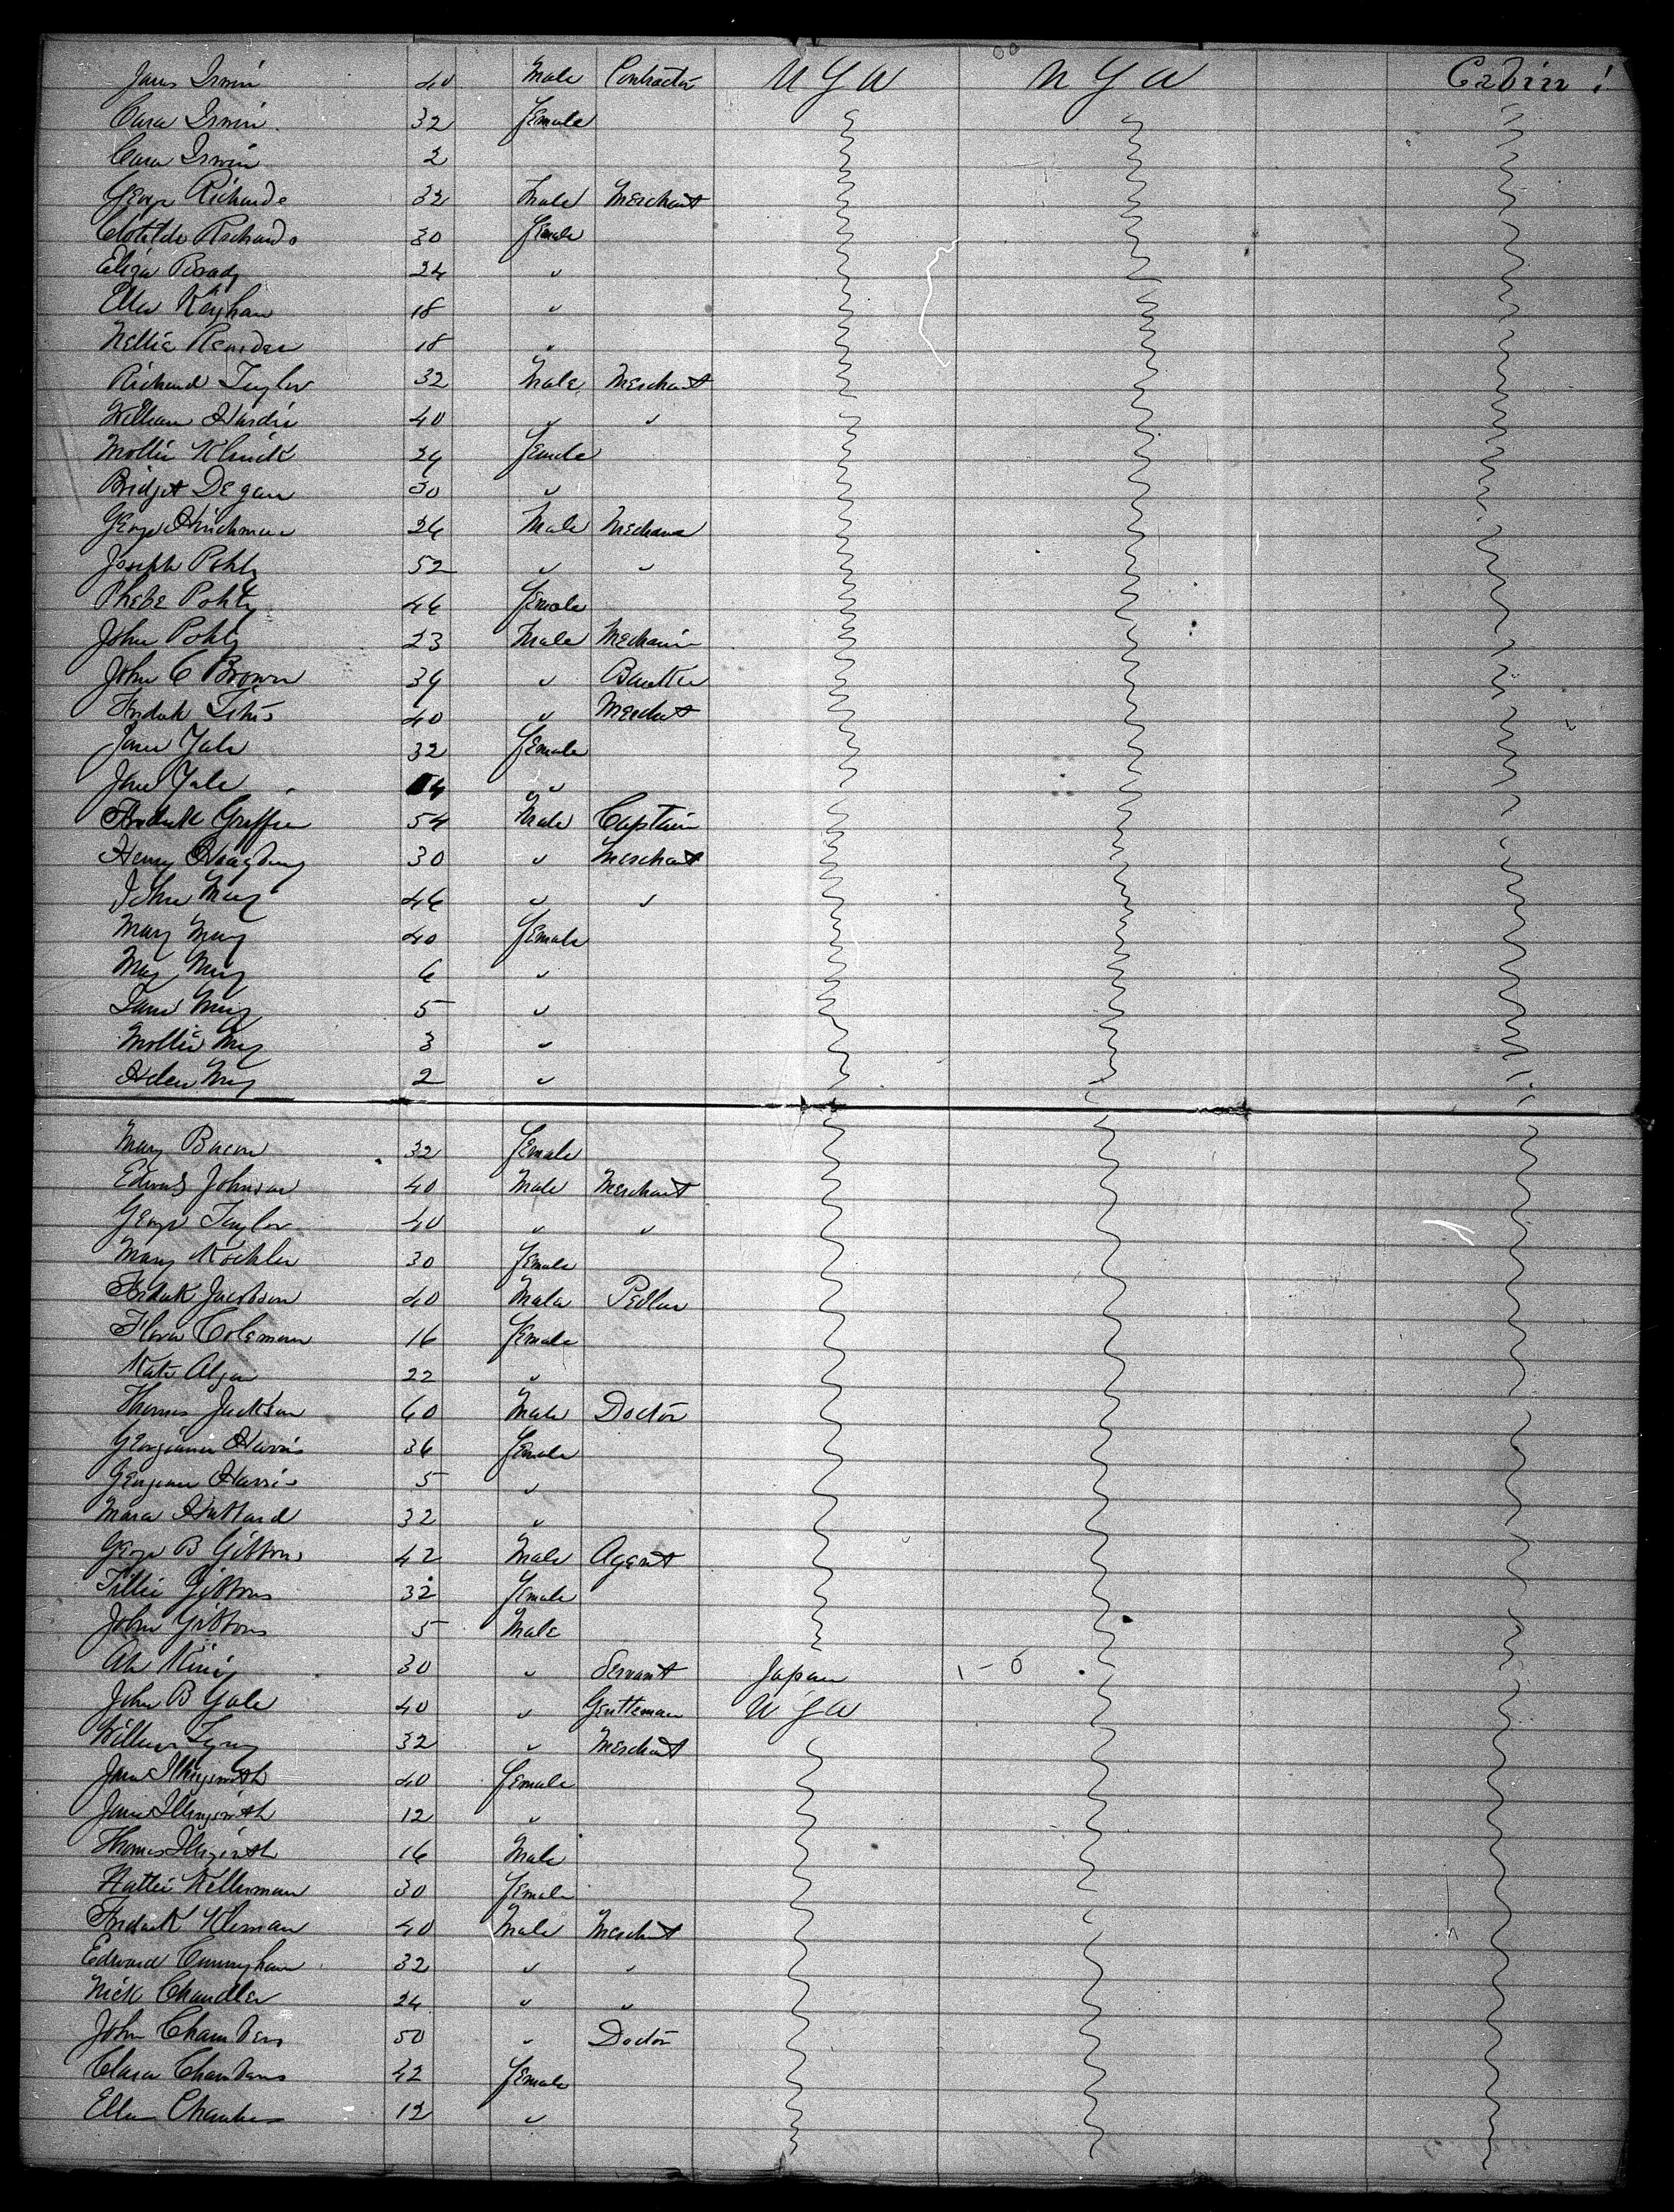 James Irwin 40 Male Contractor U S A U S A Cabin !
Clara Irwin 32 female
Clara Irwin 2
George Richards 32 Male Merchant
Clotilde Richards 30 female
Eliza Brady 24 "
Ella Keighan 18 "
Nellie 18 "
Richard Taylor 32 Male Merchant
William Hardie 40 " "
Mollie Klinck 24 female
Bridget Degan 30 "
George Hinchman 26 Male Mechanic
Joseph Pohly 52 " "
Phebe Pohly 46 female
John Pohly 23 Male Mechanic
John C Brown 34 " Banker
Fredrik Titus 40 " Merchant
Jane Yale 32 female
Jane Yale 4 "
Fredrik Griffin 54 Male Captain
Henry 30 " Merchant
John May 46 " "
Mary May 40 female
May May 6 "
May 5 "
Mollie May 3 "
Helen May 2 "
Mary Bacon 32 female
Edward Johnson 40 Male Merchant
George Taylor 40 " "
Mary Koehler 30 female
Fredrik Jacobson 40 Male Pedlar
Flora Coleman 16 female
Kate Algar 22 "
Thomas Jackson 60 Male Doctor
Georgianna Harris 36 female
Georgiana Harris 5 "
Mara Hubbard 32 "
George B Gibbons 42 Male Agent
Tillie Gibbons 32 female
John Gibbons 5 Male
Ah King 30 " Servant Japan
John B Yale 40 " Gentleman U S A
William 32 " Merchant
Jane Illingworth 40 female
Jane Illingworth 12 "
Thomas Illingworth 16 Male
Hattie Kellerman 30 female
Fredrik Kleman 40 Male Merchant
Edward Cunningham 32 " "
Nick Chandler 24 " "
John Chambers 50 " Doctor
Clara Chambers 42 female
Ellen Chambers 12 "